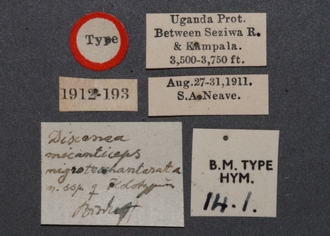 Type
Uganda Prot.
Between Seziwa R.
& Kampala.
3,500-3,750 ft.
1912-193
Aug.27-31,1911.
S.A.Neave.
n. ssp. of
B.M. TYPE
HYM.
14.1.